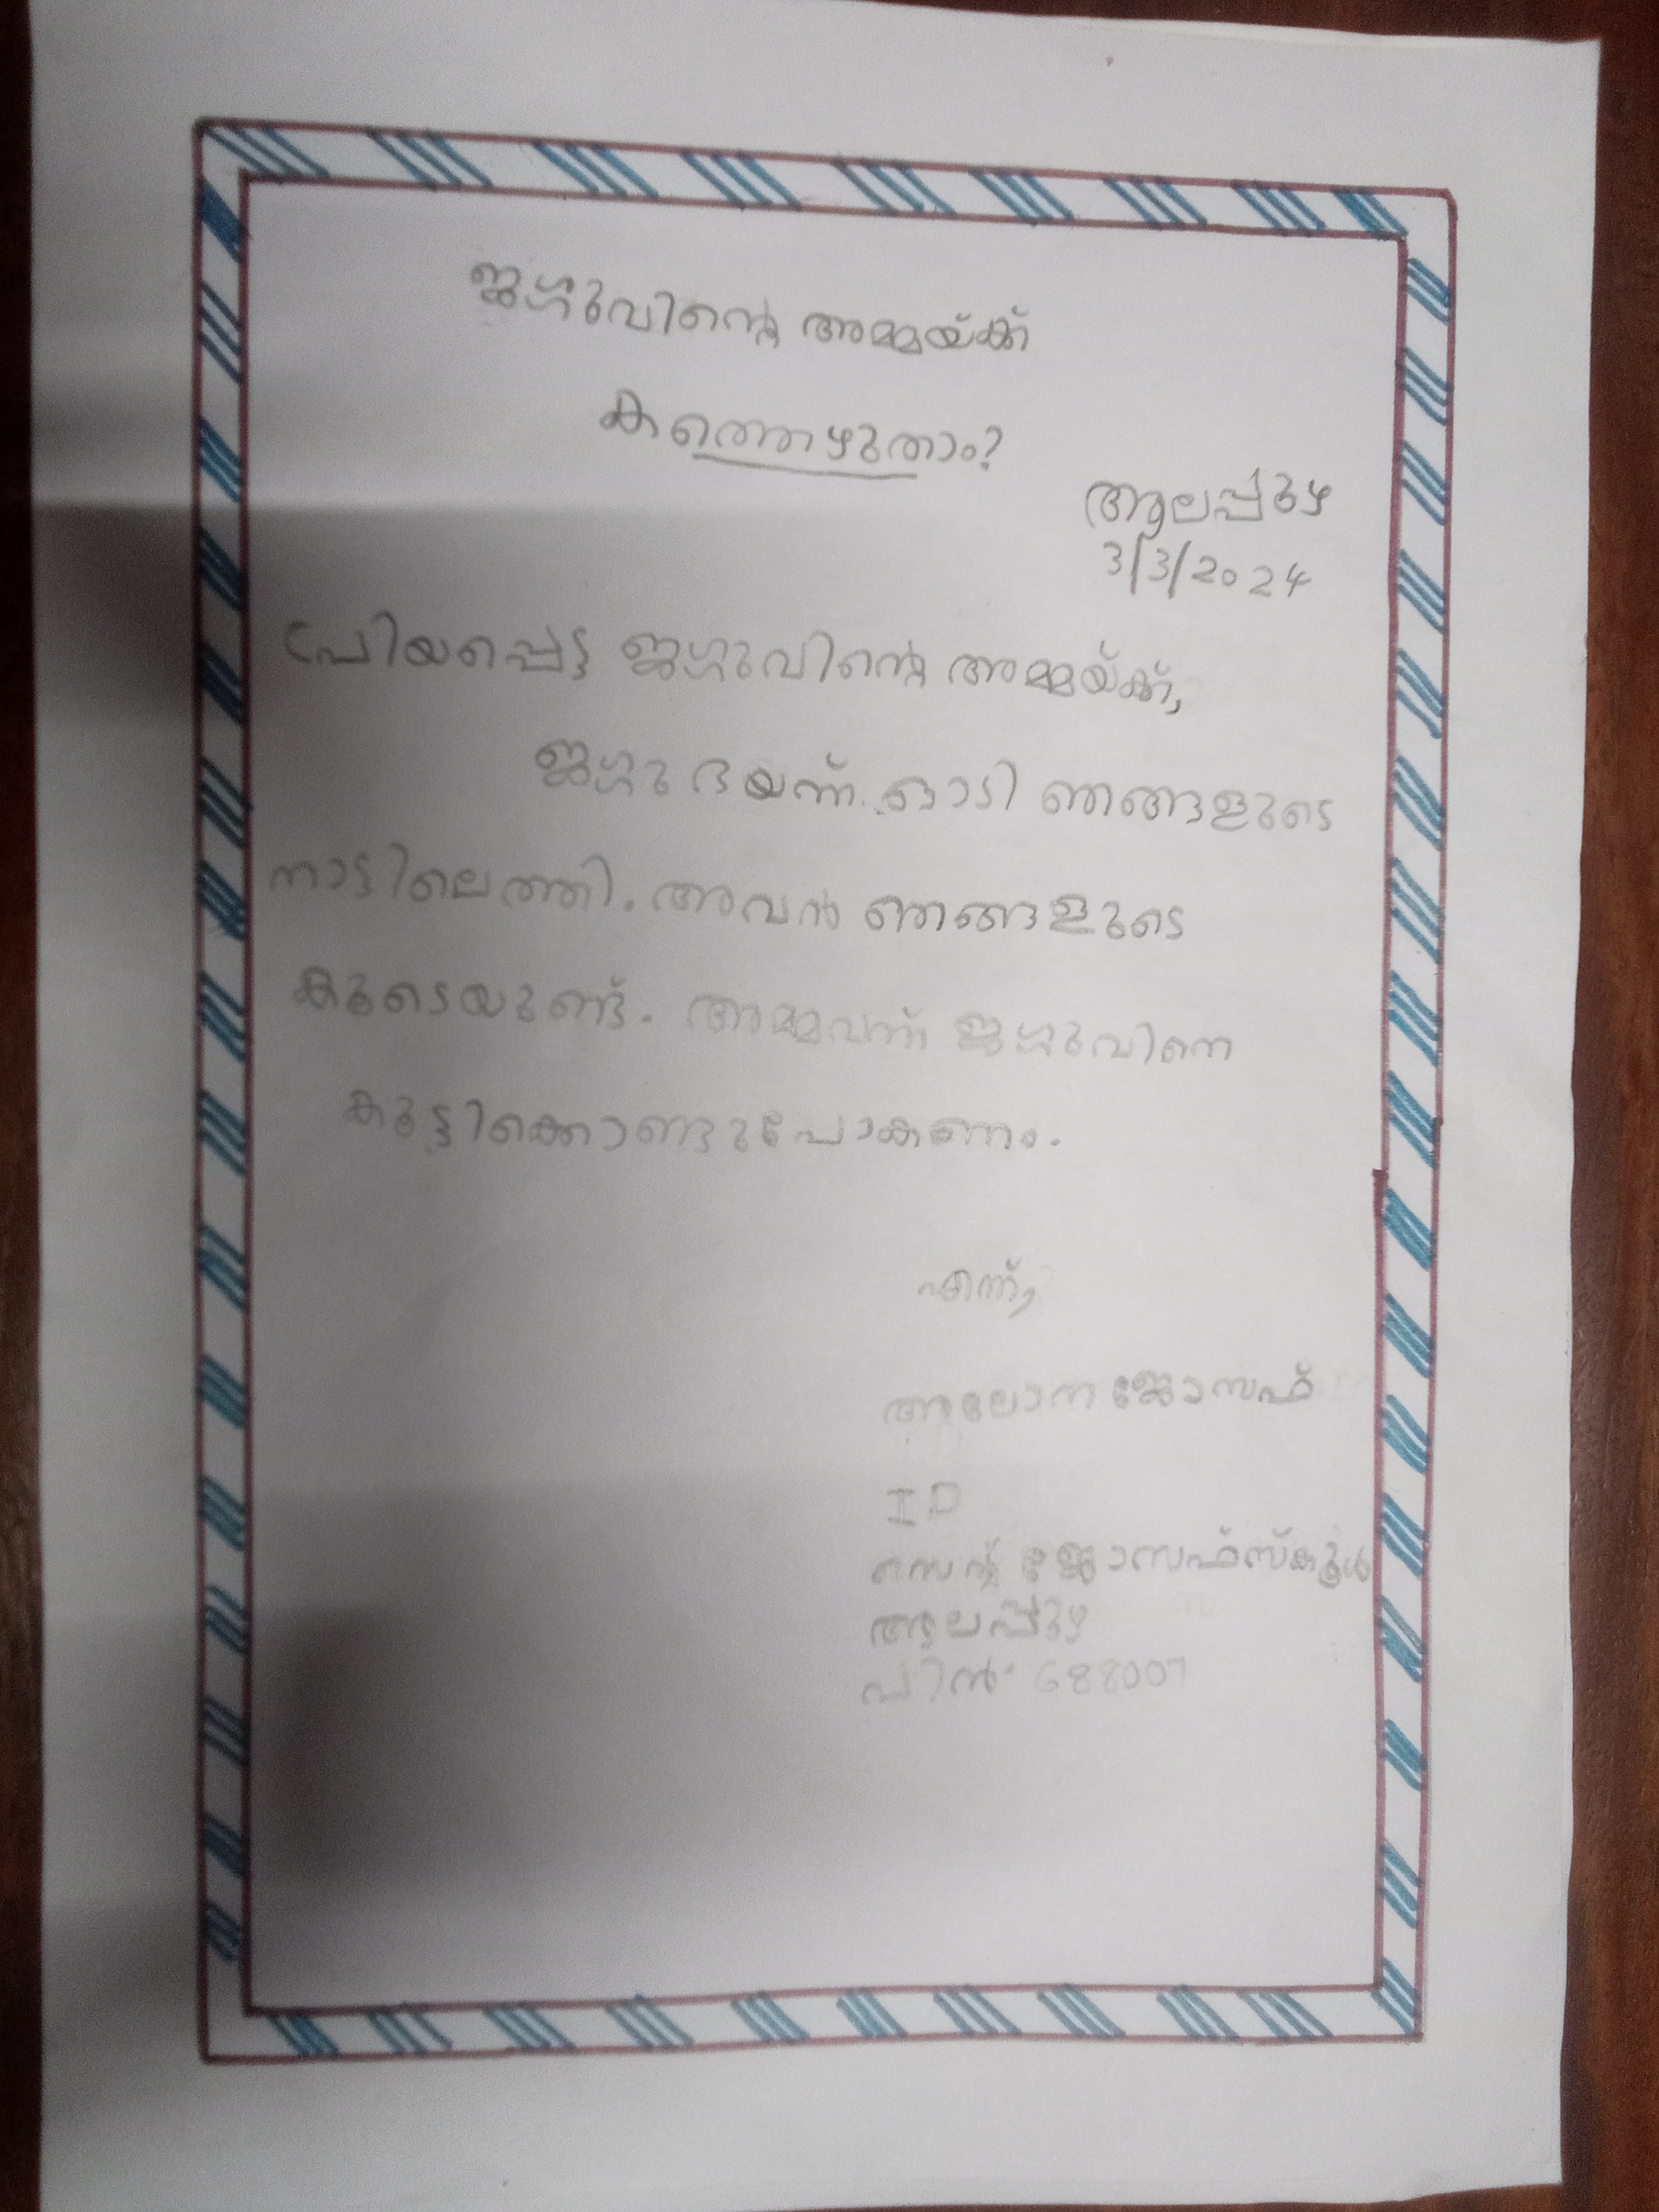 ജഗ്ഗുവിന്റെ അമ്മയ്ക്ക്
കത്തെഴുതാം?
ആലപ്പുഴ
3/3/2024
പ്രിയപ്പെട്ട ജഗ്ഗുവിന്റെ അമ്മയ്ക്ക്,
ജഗ്ഗു ഭയന്ന് ഓടി ഞങ്ങളുടെ
നാട്ടിലെത്തി. അവൻ ഞങ്ങളുടെ
കൂടെയുണ്ട്. അമ്മവന്ന് ജഗ്ഗുവിനെ
കൂട്ടിക്കൊണ്ടുപോകണം.
എന്ന്,
ആലോന ജോസഫ്
I D
സെന്റ് ജോസഫ്സ്കൂൾ
ആലപ്പുഴ
പിൻ: 688007